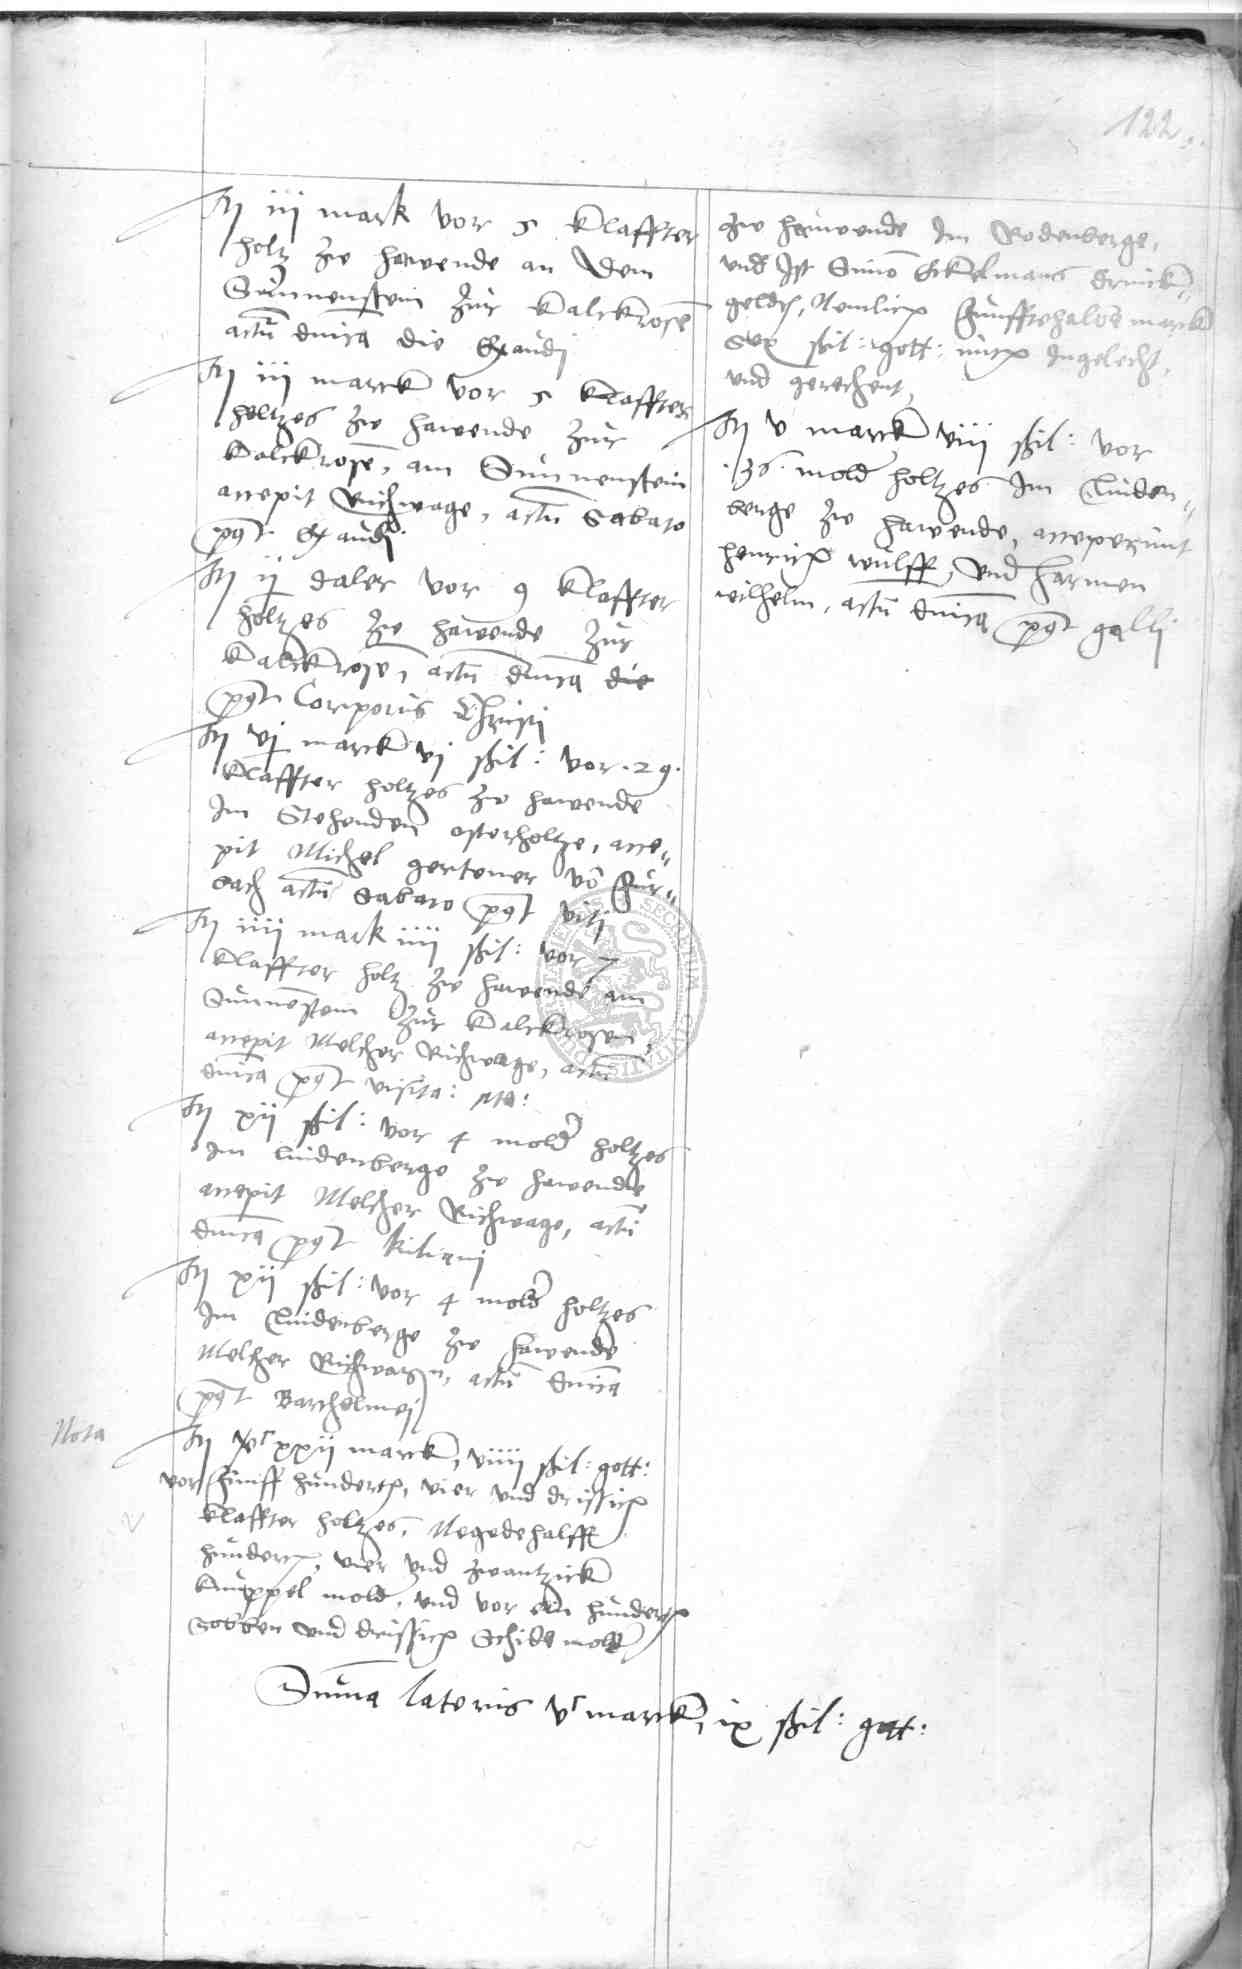 122.
Itm iij mark vor 5 klaffter
holtz zw hawende an dem
Sunnenstein zur kalckrosen
actū dnica die Exaudi
Itm iij marck vor 5 klaffter
holtzes zw hawende zur
kalckrosē, am Sunnenstein
accepit Richwage, actū Sabato
post Exaudi
Itm ij daler vor 9 klaffter
holtzes zw hawende zur
kalckrosen, actū dnica die
post Corporis Christi
Itm vj marck vj ßil: vor .29.
klaffter holtzes zw hawende
Im Stehenden osterholtze, acce„
pit Michel gertener vō Sur„
bach actū Sabato post viti
Itm iiij mark iiij ßil: vor 7
klaffter holtz zw hawende am
Sunnēstein zur kalckrosen,
accepit Melcher Richwage, actū
dnica post visita: Ma:
Itm xij ßil: vor 4 mold holtzes
Im lindenberge zw hawende
accepit Melcher Richwage, actū
dnica post kiliani
Itm xij ßil: vor 4 mold holtzes
Im Lindenberge zw hawende
Melcher Richwagn, actū dnica
post Barthelmei
Nota
Itm xxij marck, viiij ßil: gott:
vor funff hundert, vier und drissich
klaffter holtzes, Negedehalff
hundert, vier und zwantzick
knuppel mold, und vor ein hundert
sobben und drissich Schide mold
zw hawende Im Rodenberge,
und Ist Simō Eckelmans drinck„
geldt, Nemlich funfftehalbe marck
Sex ßil: gott: mith Ingelecht,
und gerechent,
Itm v marck viij ßil: vor
.36. mold holtzes Im Linden„
berge zw hawende, acceperunt
henrich wulff, und harmen
wilhelm, actū dnica post galli
Suma lateris vc marck, ix ßil: gott:
SECRETUM CIVITATIS